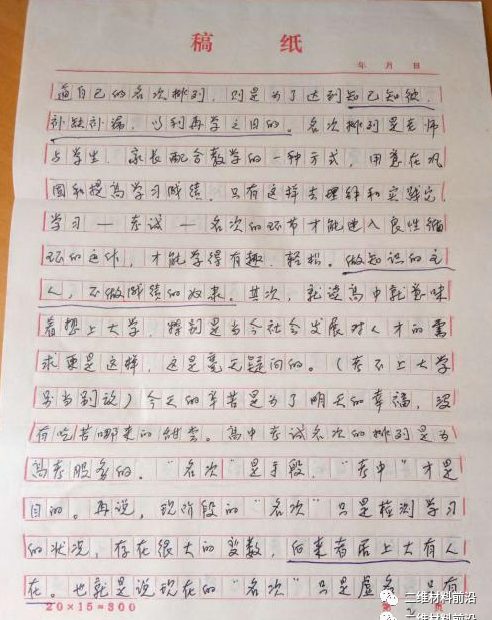 稿 纸
年 月 日
道自己的名次排列，则是为了达到知己知彼，
补缺补漏，以利再学之目的。名次排列是老师
与学生、家长配合教学的一种方式，用意在巩
固和提高学习成绩。只有这样去理解和实践完
学习—考试—名次的环节才能进入良性循
环的运作，才能学得有趣、轻松。做知识的主
人，不做成绩的奴隶。其次，就读高中就意味
着想上大学，特别是当今社会发展对人才的需
求更是这样，这是毫无疑问的。（考不上大学
另当别说）今天的辛苦是为了明天的幸福，没
有吃苦哪来的甜尝。高中考试名次的排列是为
高考服务的。“名次”是手段，“考中”才是
目的。再说，现阶段的“名次”只是检测学习
的状况，存在很大的变数，后来者居上大有人
在。也就是说现在的“名次”只是虚名，只有
20×15=300
第 2 页
二维材料前沿
二维材料前沿